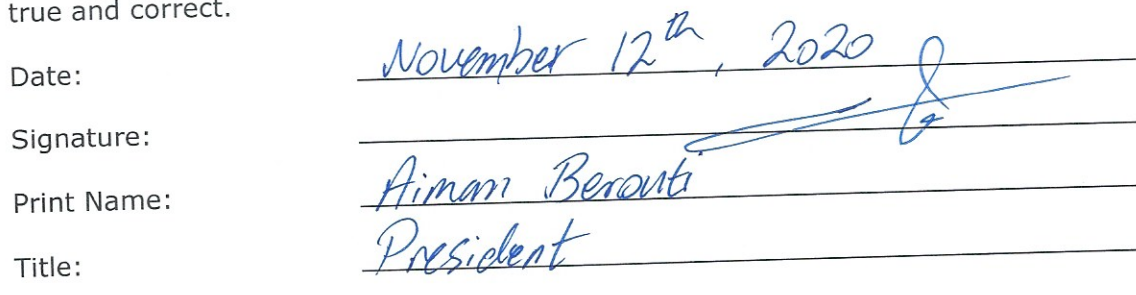 true and correct.
Date: November 12th, 2020
Signature:
Print Name: Aiman Berouti
Title: President